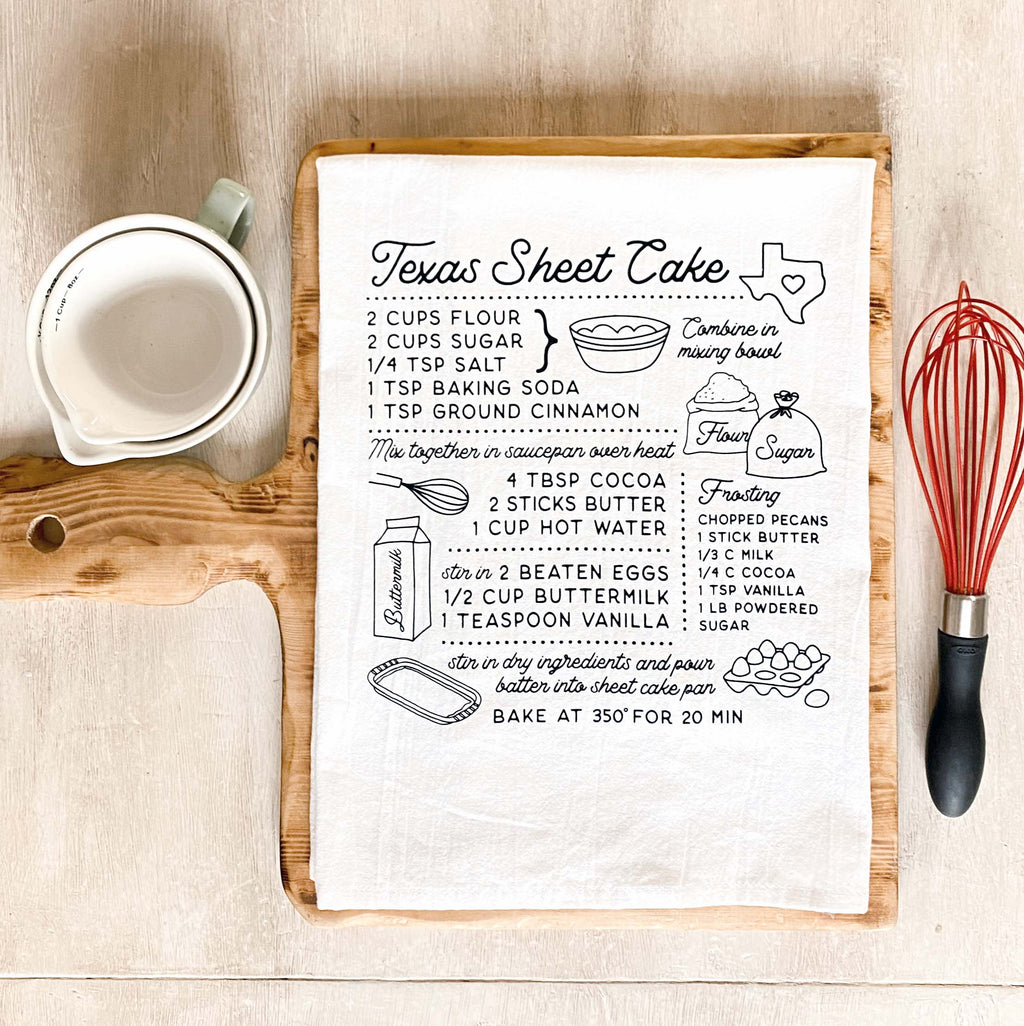 Texas Sheet Cake
2 CUPS FLOUR
2 CUPS SUGAR
1/4 TSP SALT
1 TSP BAKING SODA
1 TSP GROUND CINNAMON
Combine in
mixing bowl
Flour
Sugar
Mix together in saucepan over heat
4 TBSP COCOA
2 STICKS BUTTER
1 CUP HOT WATER
Buttermilk
stir in 2 BEATEN EGGS
1/2 CUP BUTTERMILK
1 TEASPOON VANILLA
Frosting
CHOPPED PECANS
1 STICK BUTTER
1/3 C MILK
1/4 C COCOA
1 TSP VANILLA
1 LB POWDERED
SUGAR
stir in dry ingredients and pour
batter into sheet cake pan
BAKE AT 350° FOR 20 MIN
1 Cup - 8oz
OXO